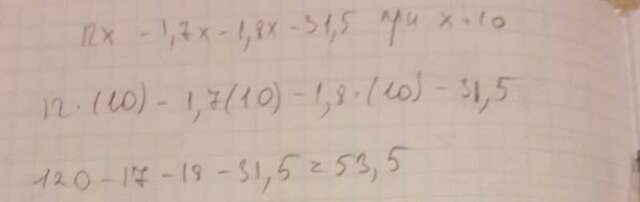 12x - 1,7x - 1,8x - 31,5 при x = 10
12 · (10) - 1,7(10) - 1,8 · (10) - 31,5
120 - 17 - 18 - 31,5 = 53,5